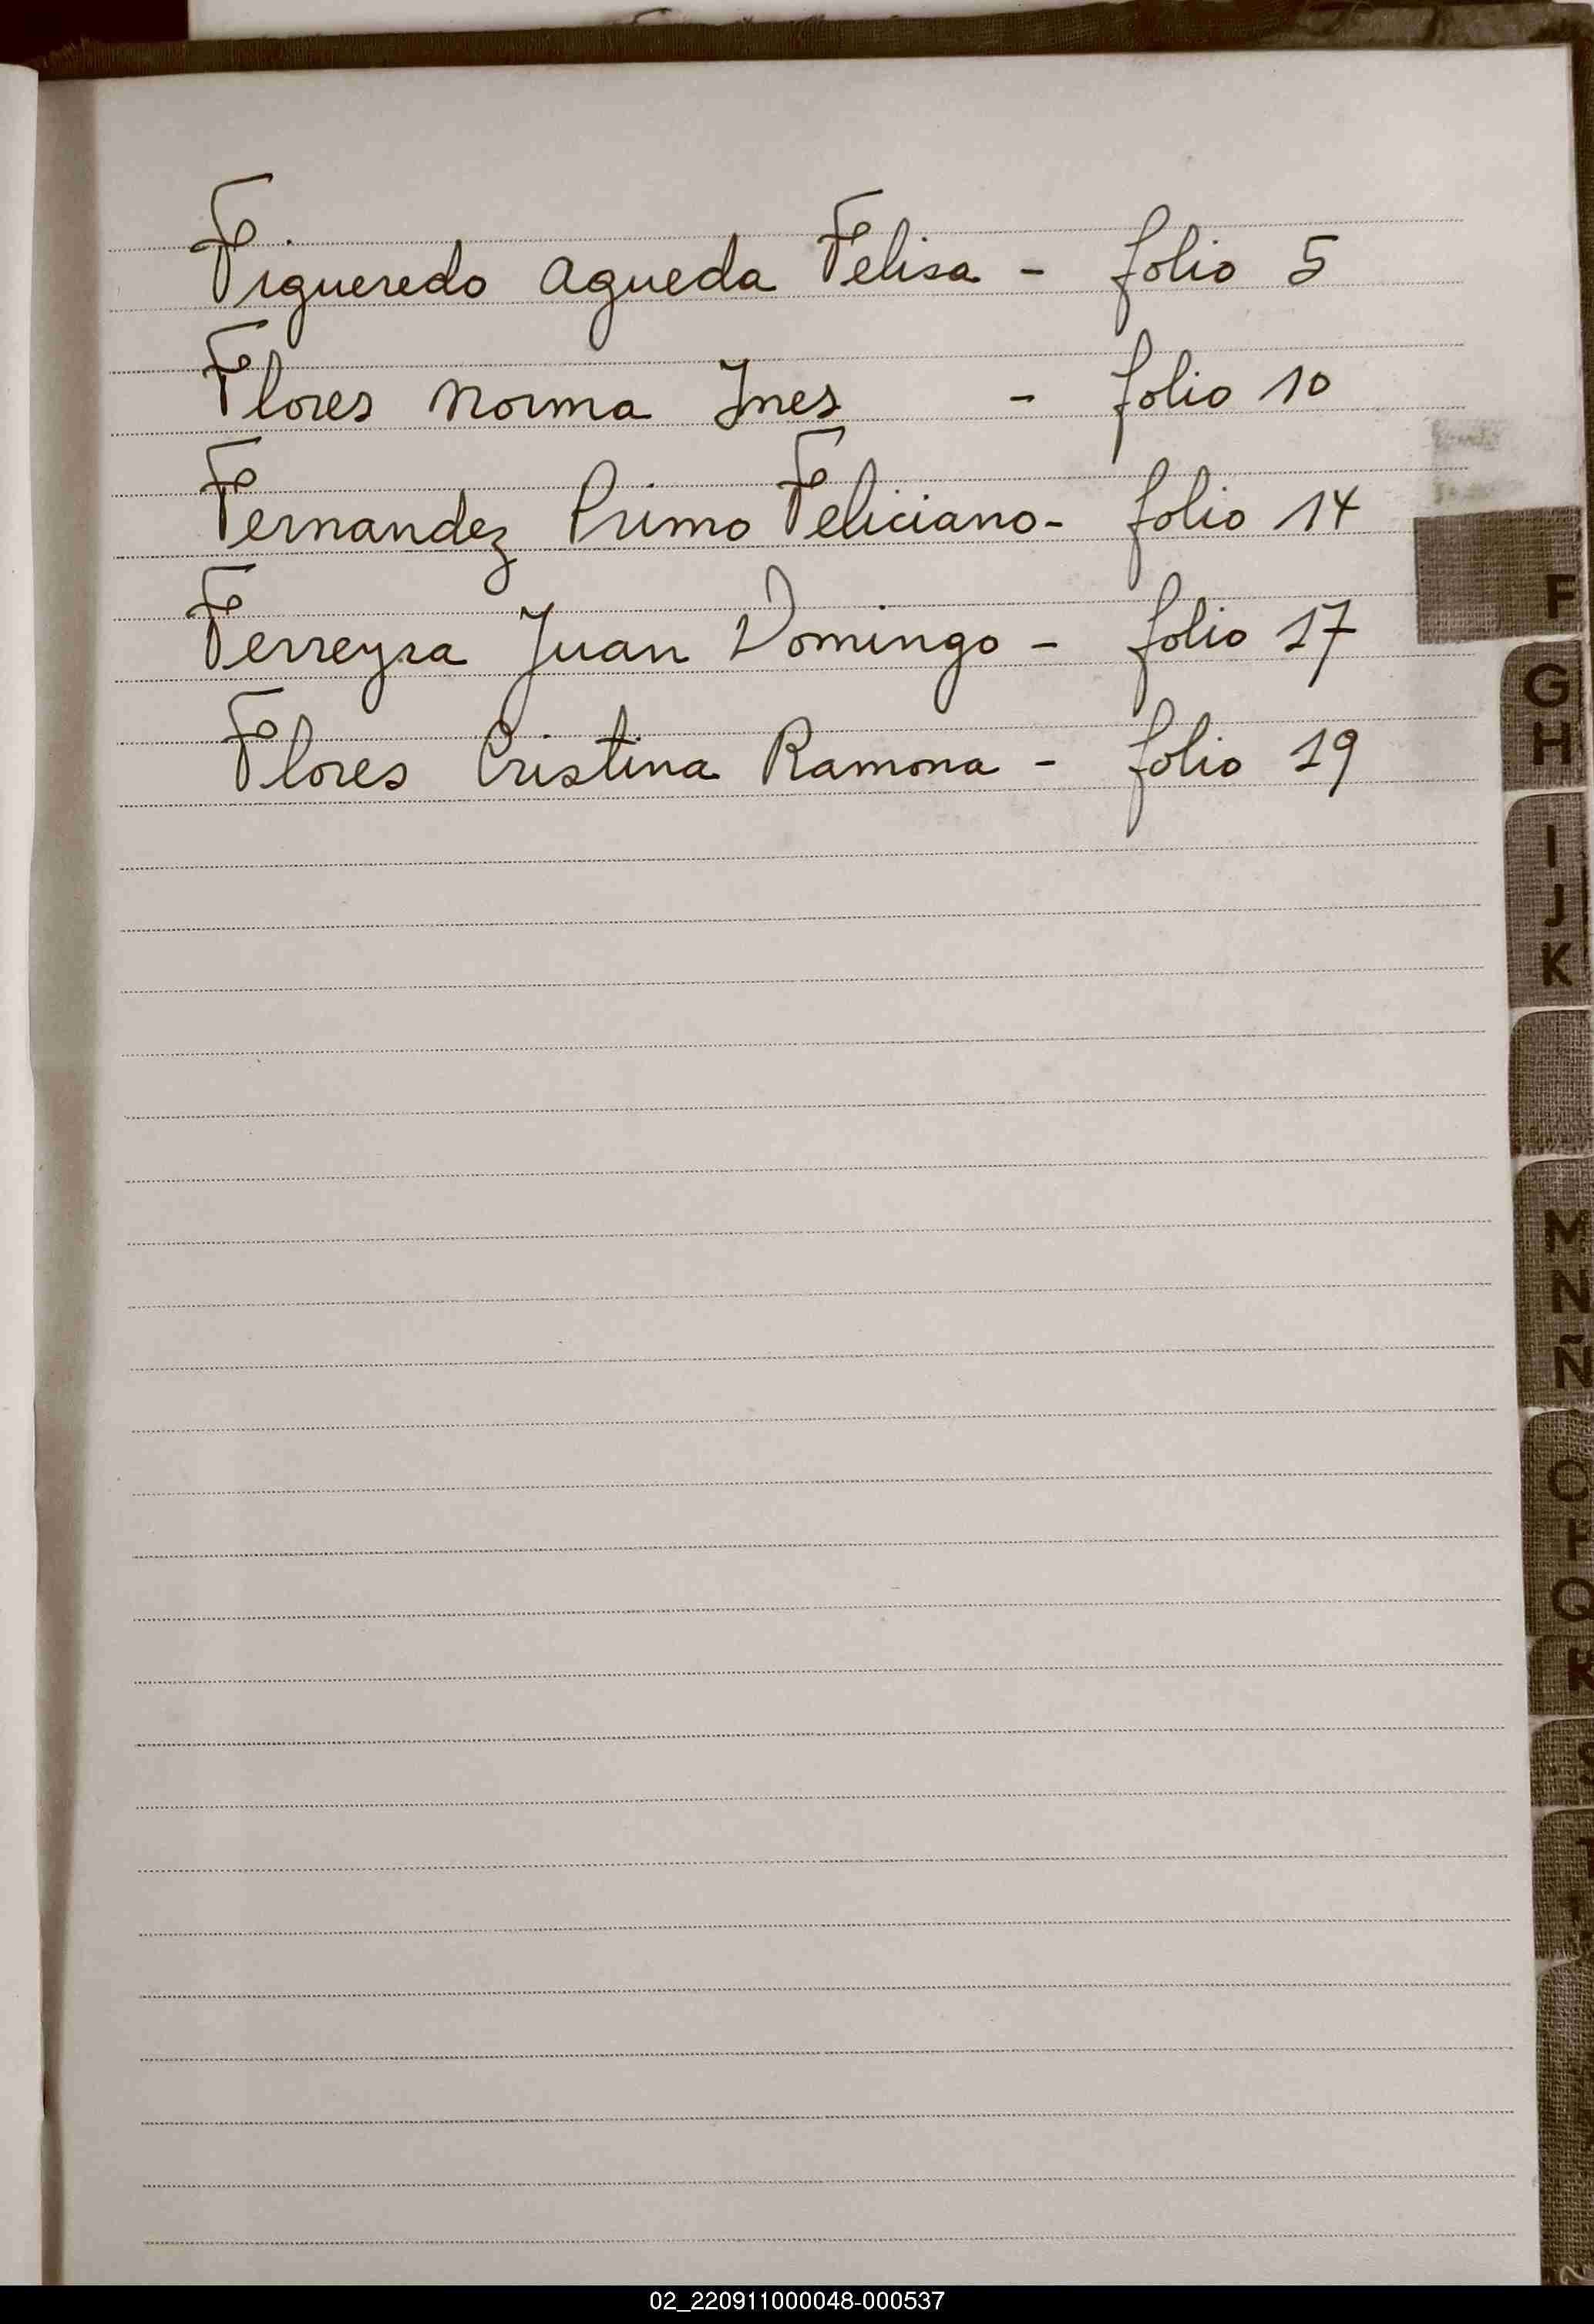 Figueredo Agueda Felisa - folio 5
Flores Norma Ines - folio 10
Fernandez Primo Feliciano - folio 14
Ferreyra Juan Domingo - folio 17
Flores Cristina Ramona - folio 19
F
G
H
I
J
K
M
N
Ñ
O
P
Q
R
02_220911000048-000537